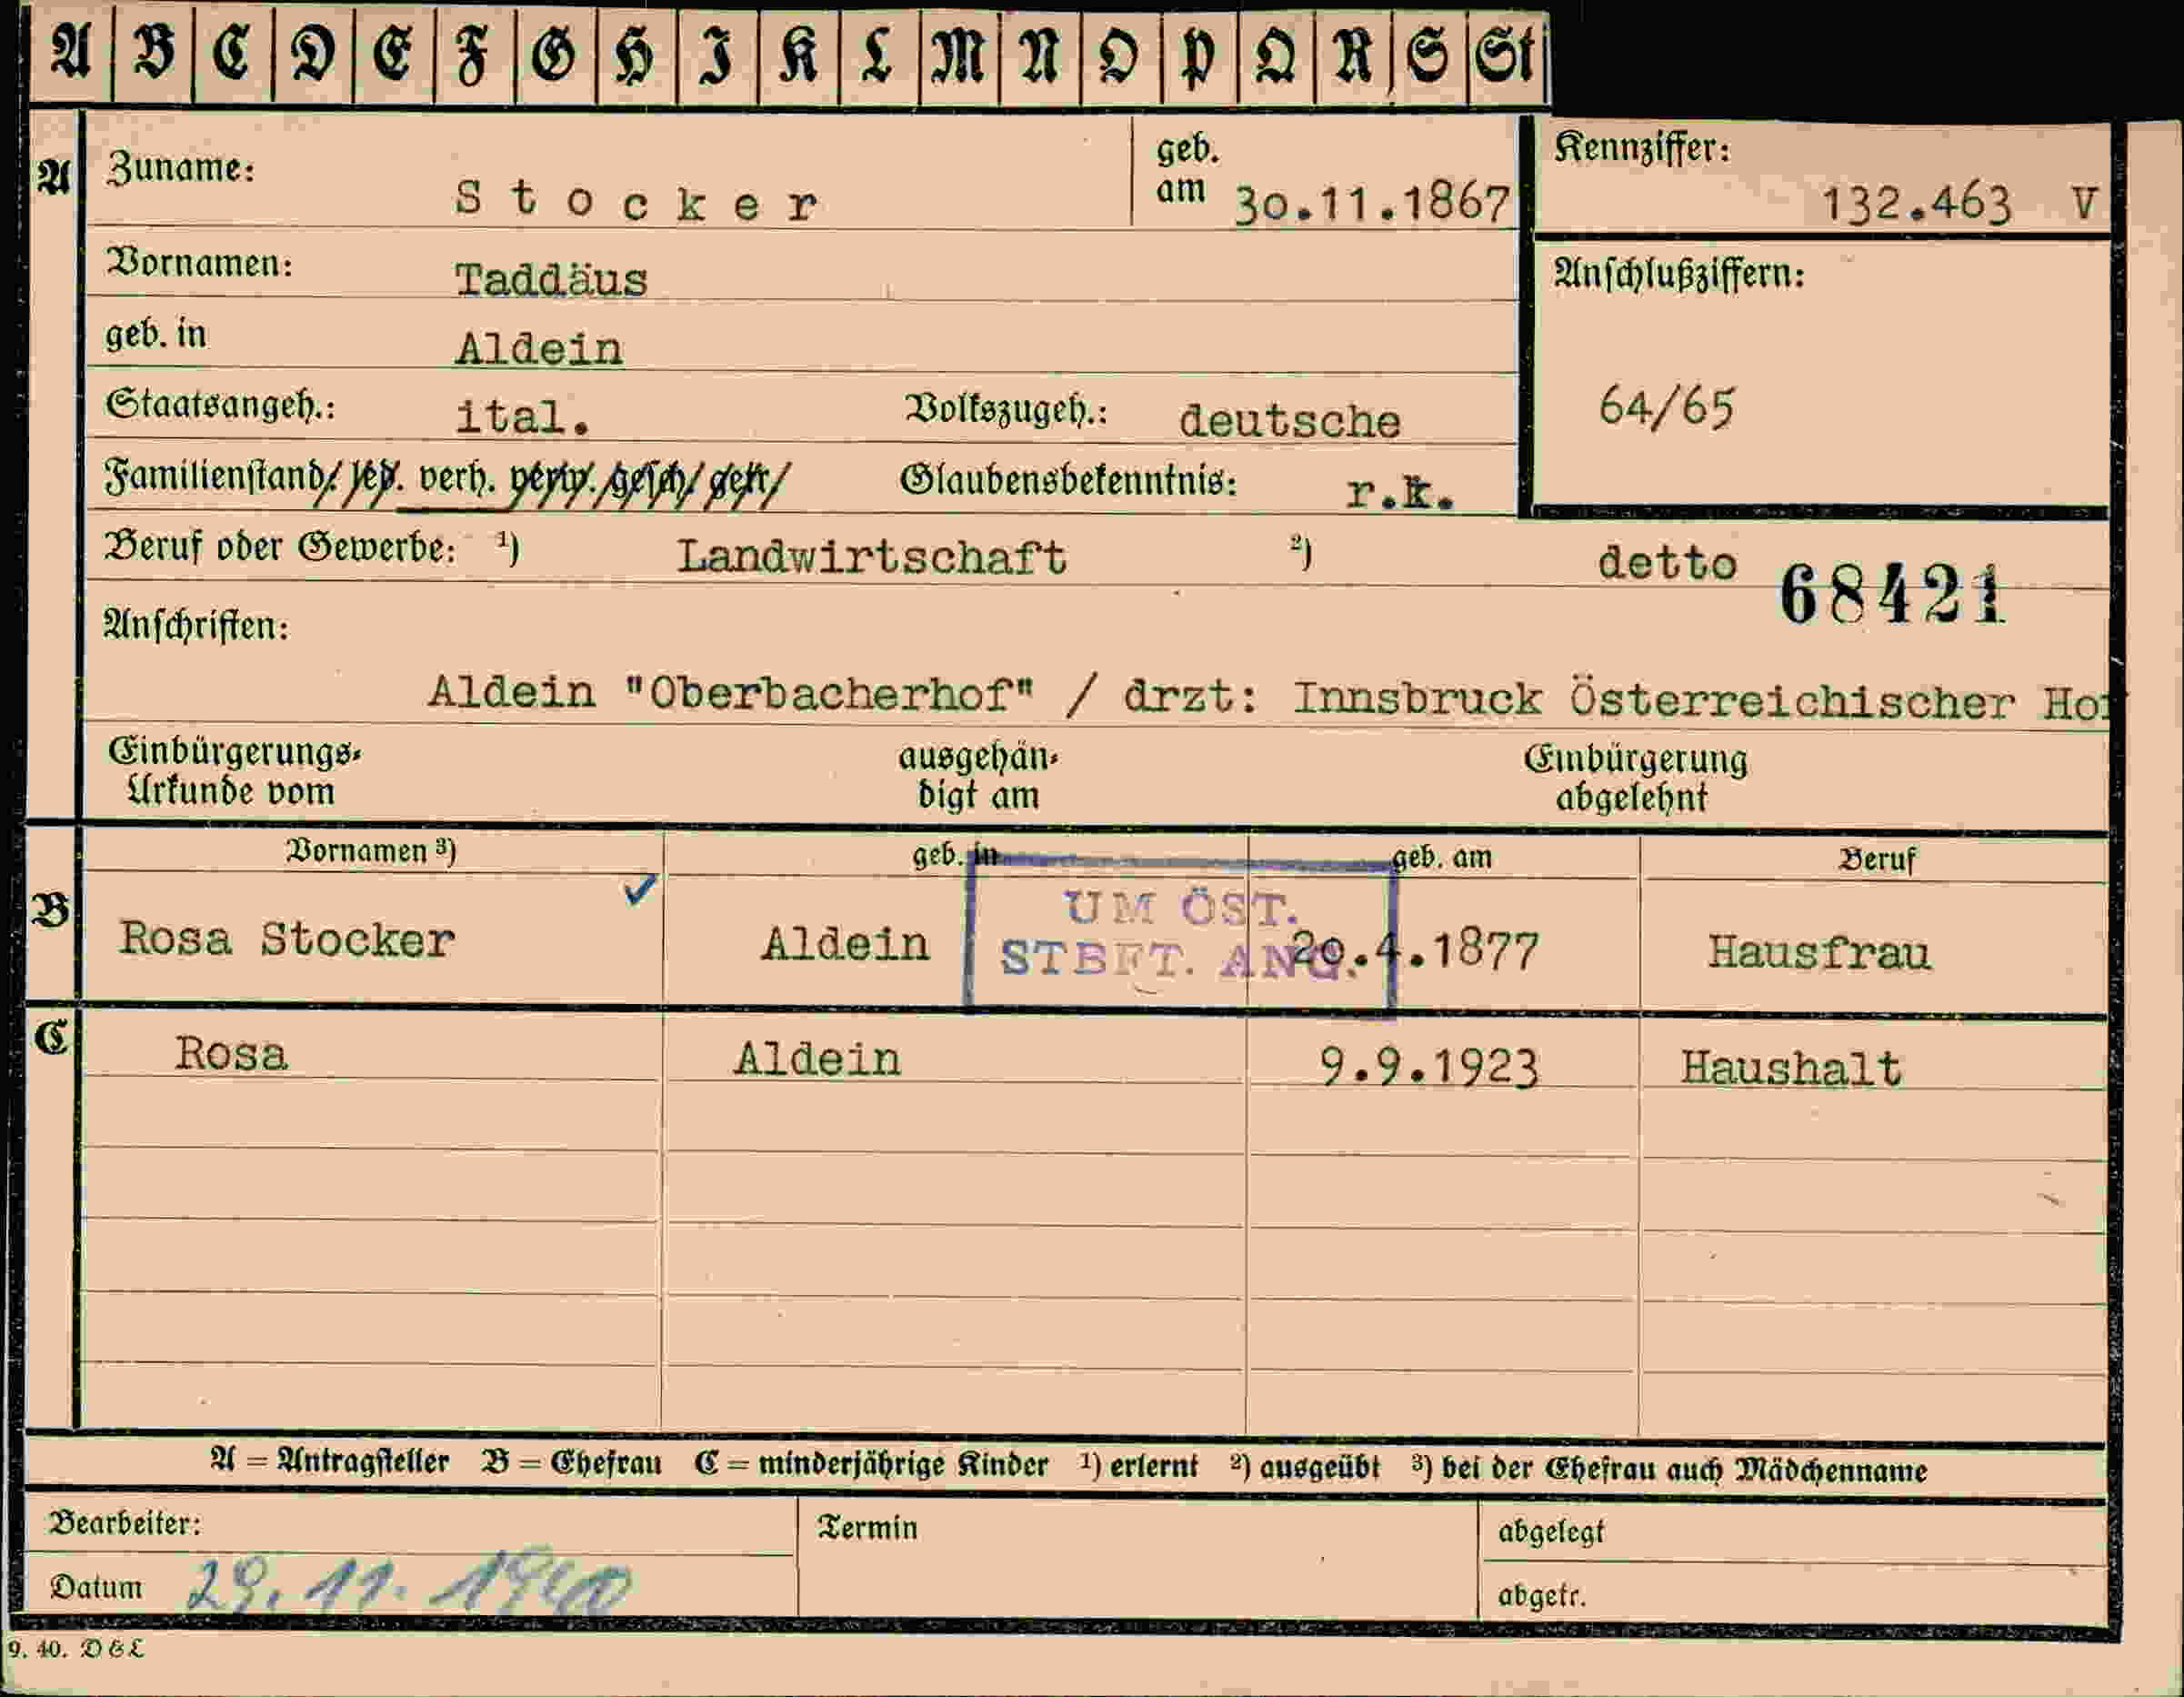 A B C D E F G H I K L M N O P Q R S St
A Zuname: Stocker geb. am 30.11.1867 Kennziffer: 132.463 V
Vornamen: Taddäus Anschlußziffern:
geb. in Aldein
Staatsangeh.: ital. Volkszugeh.: deutsche 64/65
Familienstand: led. verh. verw. gesch. getr. Glaubensbekenntnis: r.k.
Beruf oder Gewerbe: 1) Landwirtschaft 2) detto 68421
Anschriften:
Aldein "Oberbacherhof" / drzt: Innsbruck Österreichischer Hof
Einbürgerungs- ausgehän- Einbürgerung
Urkunde vom digt am abgelehnt
Vornamen 3) geb. in geb. am Beruf
UM ÖST.
STBFT. ANG.
B Rosa Stocker Aldein 20.4.1877 Hausfrau
C Rosa Aldein 9.9.1923 Haushalt
A = Antragsteller B = Ehefrau C = minderjährige Kinder 1) erlernt 2) ausgeübt 3) bei der Ehefrau auch Mädchenname
Bearbeiter: Termin abgelegt
Datum 29.11.1940 abgetr.
9. 40. DEL